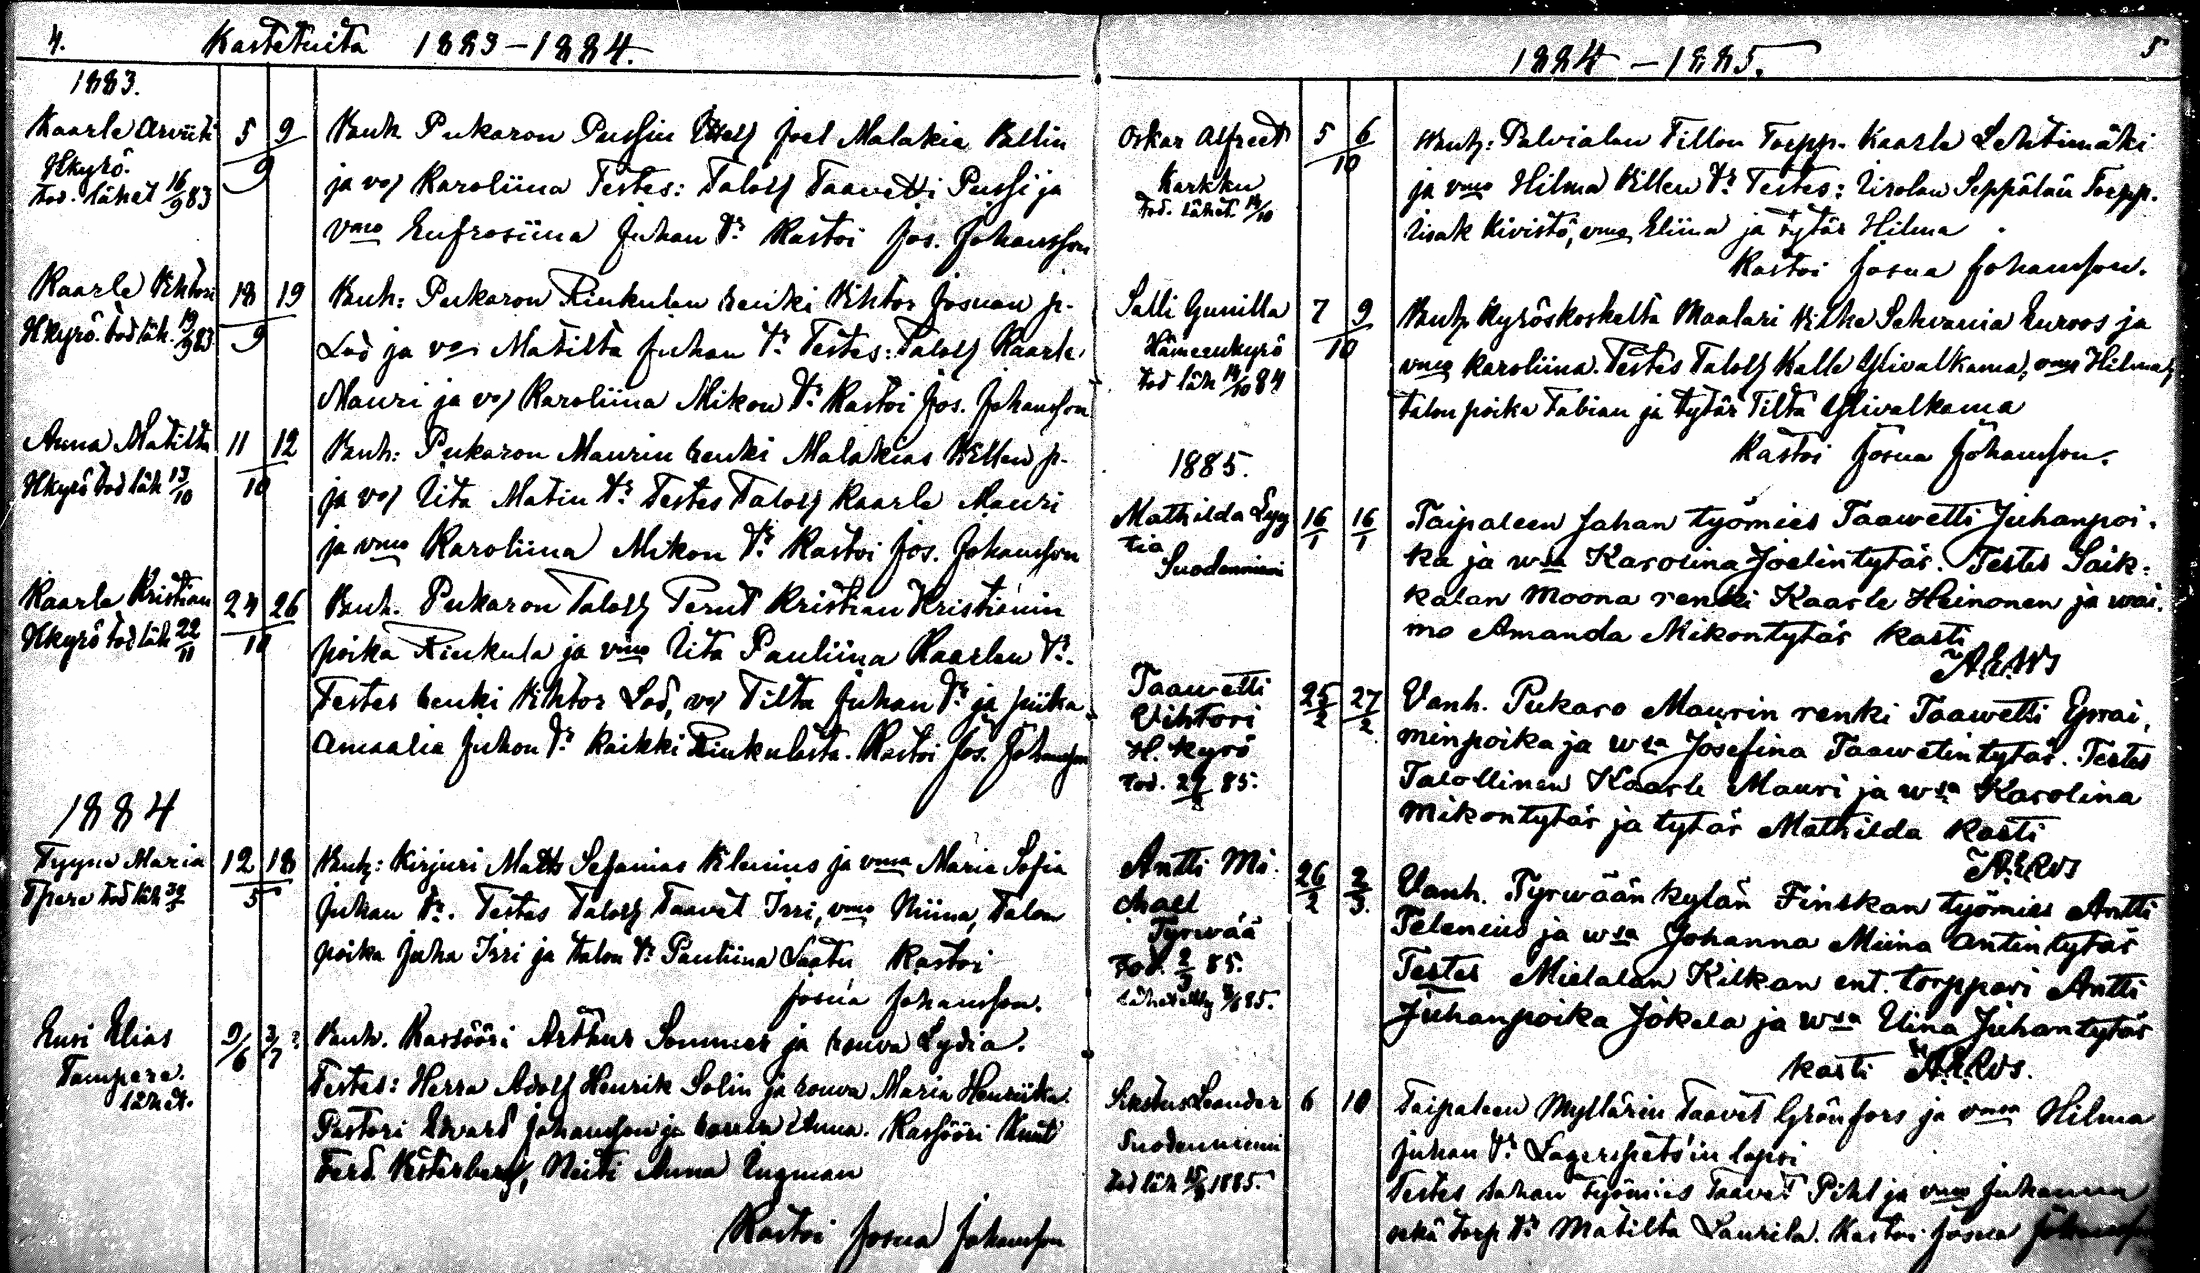 4. Kastetuita 1883–1884.
1883.
Kaarle Arviiti 5 9
9
Hkyrö.
tod. lähet 16/9 83
Vanh Pukaron Pussin Joel Malakia
ja vo/ Karoliina Testes: Talolls Taavetti Pussi ja
vmo Eufrosiina Juhan tr Kastoi Jos. Johansson
Kaarle Vihtori 18 19
9
Hkyrö. tod läh. 19/9 83
Vanh: Pukaron Rinkulan renki Vihtor Josuan p.
Lod ja vo Matilta Juhan tr Testes: Talolls Kaarle
Mauri ja vo/ Karoliina Mikon tr Kastoi Jos. Johansson
Anna Matilta 11 12
10
Hkyrö tod läh 13/10
Vanh: Pukaron Maurin renki Malakias Villen p.
ja vo/ Iita Matin tr Testes Talolls Kaarle Mauri
ja vmo Karoliina Mikon tr Kastoi Jos. Johansson
Kaarle Kristian 24 26
10
Hkyrö tod läh 22/11
Vanh. Pukaron Talolls Kristian Kristianin
poika Rinkula ja vmo Iita Pauliina Kaarlen tr.
Testes renki Vihtor Lod, vo/ Tilta Juhan tr ja piika
Amaalia Juhon tr Kaikki Rinkulasta. Kastoi Jos. Johansson
1884
Tyyne Maria 12 18
5
Tpere tod läh
Vanh: Kirjuri Matts Sefanias Klenius ja vmsa Maria Sofia
Juhan tr. Testes Talolls Taavet Issi, vmo Miina, Talon
poika Juha Issi ja talon tr Pauliina Kastoi
Josua Johansson.
Ensi Elias 9/6 2/7?
Tampere.
lähet.
Vanh. Kassööri Arthur Sommer ja rouva Lydia.
Testes: Herra Adolf Henrik Solin ja rouva Maria Henriika
Pastori Edvard Johansson ja Anna. Kassööri Knut
Ferd. Vesterberg, Neiti Anna Engman
Kastoi Josua Johansson
1884–1885. 5
Oskar Alfred 5 6
10
Karkku
tod. lähet. 14/10
Vanh: Palvialan Tillon Torpp. Kaarle Lehtimäki
ja vmo Hilma Villen tr Testes: Uisolan Seppälän Torpp.
Iisak Kivistö, vmo Eliina ja tytär Hilma
Kastoi Josua Johansson.
Salli Gunilla 7 9
10
Hämeenkyrö
tod läh 14/10 84
Vanh. Kyröskoskelta Maalari Vilhe Sehvania Euroos ja
vmo Karoliina. Testes Talolls Kalle Ylivalkama, vmo Hilma,
talon poika Fabian ja tytär Tilta Ylivalkama
Kastoi Josua Johansson.
1885.
Mathilda Lyy 16/1 16/1
tia
Suodenniemi
Taipaleen Jahan työmies Taawetti Juhanpoi-
ka ja wsa Karolina Joelintytär. Testes Saik-
kalan Moona renki Kaarle Heinonen ja wai-
mo Amanda Mikontytär Kasti
Taawetti 25/2 27/2
Vihtori
H. Kyrö
tod. 27/2 85.
Vanh. Pukaro Maurin renki Taawetti Eprai-
minpoika ja wsa Josefina Taawetintytär. Testes
Talollinen Kaarle Mauri ja wsa Karolina
Mikontytär ja tytär Mathilda Kasti
Antti Mi- 26/2 2/3.
chael
Tyrwää
Tod. 2/3 85.
Vanh. Tyrwään kylän Finskan työmies Antti
Telenius ja wsa Johanna Miina Antintytär
Testes Mielalan Kilkan ent. torppari Antti
Juhanpoika Jokela ja wsa Viina Juhantytär
kasti
Sikstus Leander 6 10
Suodenniemi
tod läh 1885.
Taipaleen Myllärin Taavet Grönfors ja vmsa Hilma
Juhan tr Lagerspets'in lapsi
Testes sahan työmies Taavet Pihl ja vmo Johanna
sekä torp tr Matilta Laurila. Kastoi Josua Johansson